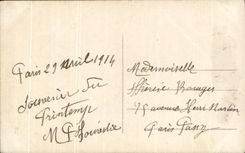 Paris 29 Avril 1914
Souvenir du
Printemps
Mademoiselle
Thérèse
75 avenue Henri Martin
Paris Passy